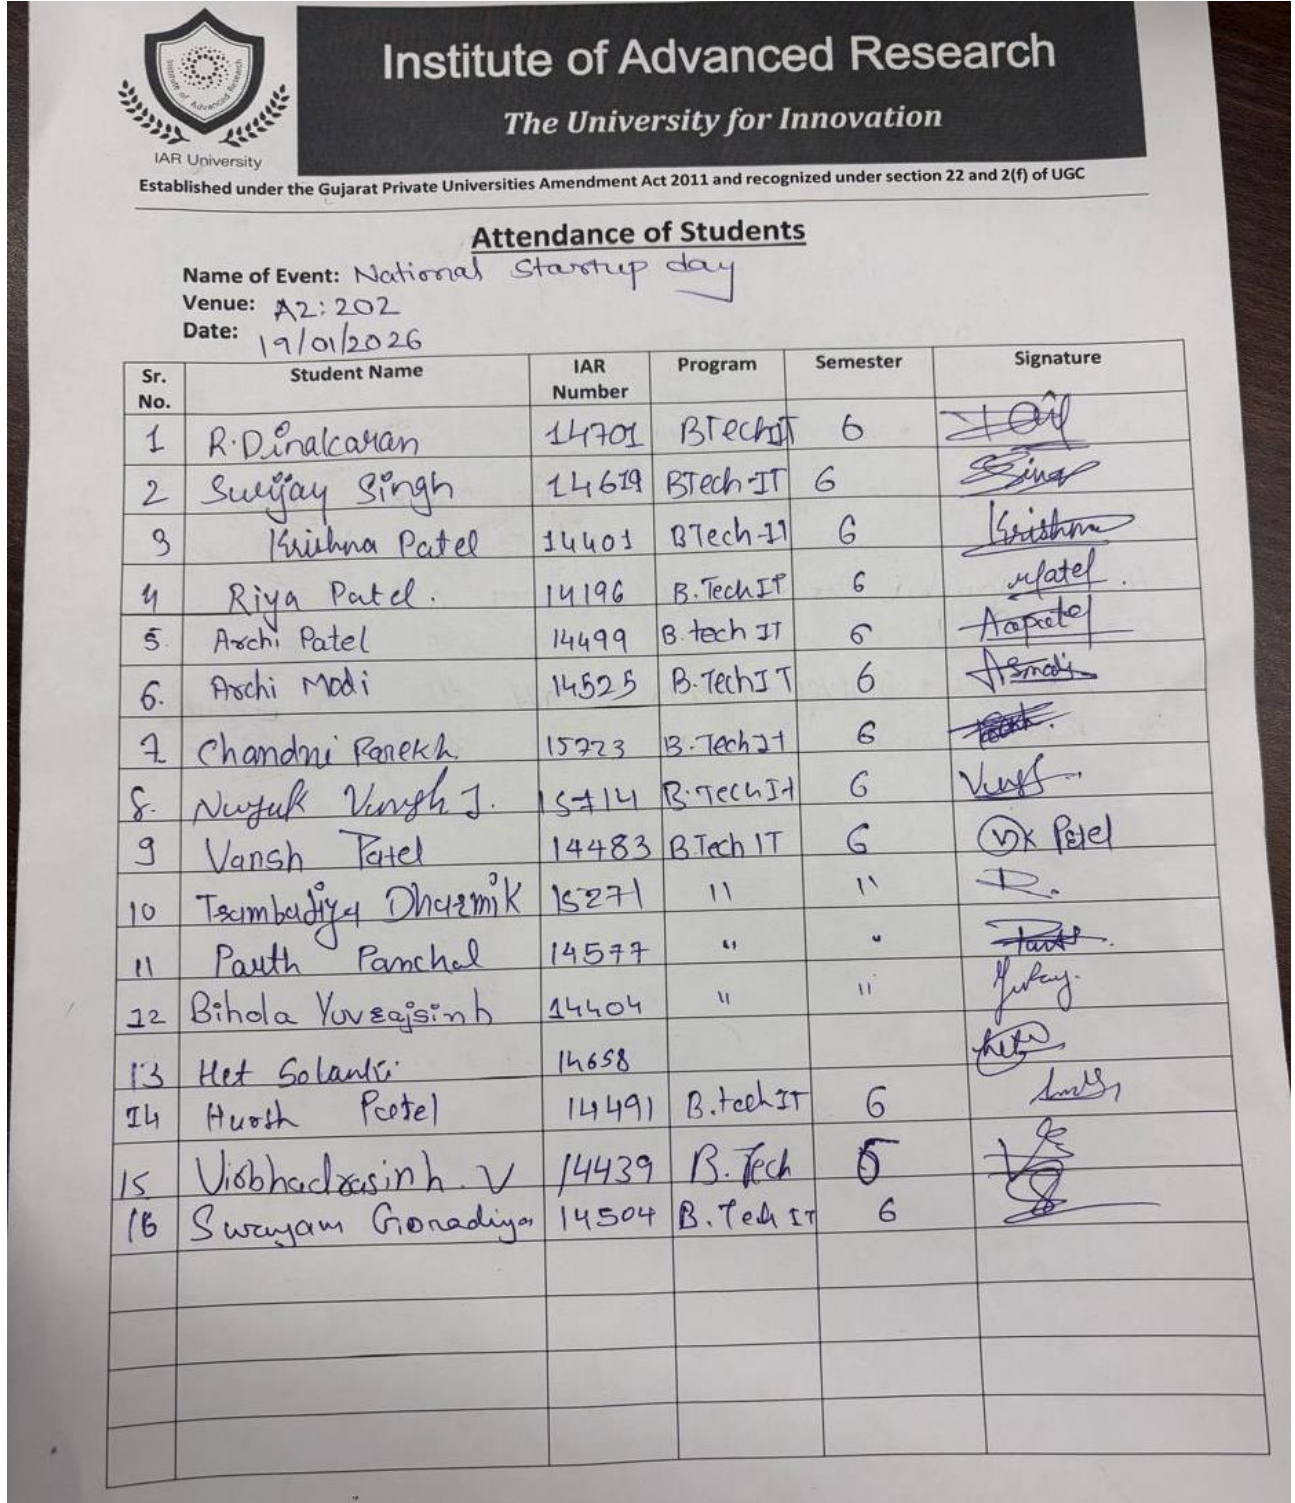 Institute of Advanced Research
The University for Innovation
Institute of Advanced Research
IAR University
Established under the Gujarat Private Universities Amendment Act 2011 and recognized under section 22 and 2(f) of UGC
Attendance of Students
Name of Event: National Startup day
Venue: A2:202
Date: 19/01/2026
Sr. No. Student Name IAR Number Program Semester Signature
1 R.Dinakaran 14701 BTechIT 6
2 Surijay Singh 14619 BTech-IT 6 Singh
3 Krishna Patel 14401 BTech-IT 6 Krishna
4 Riya Patel. 14196 B.TechIT 6 rpatel.
5. Archi Patel 14499 B.tech IT 6 Aapatel
6. Archi Modi 14525 B.TechIT 6 Asmodi
7 Chandni Parekh 15723 B.TechIt 6
8. 15714 B.TechIt 6
9 Vansh Patel 14483 B.Tech IT 6 VK Patel
10 Trambadiya Dharmik 15271 " " D.
11 Parth Panchal 14577 " " Parth
12 Bihola Yuvrajsinh 14404 " "
13 Het Solanki 14658
14 Harsh Patel 14491 B.tech IT 6
15 Virbhadrasinh. V 14439 B.Tech 6
16 Swayam Gonadiya 14504 B.Tech IT 6